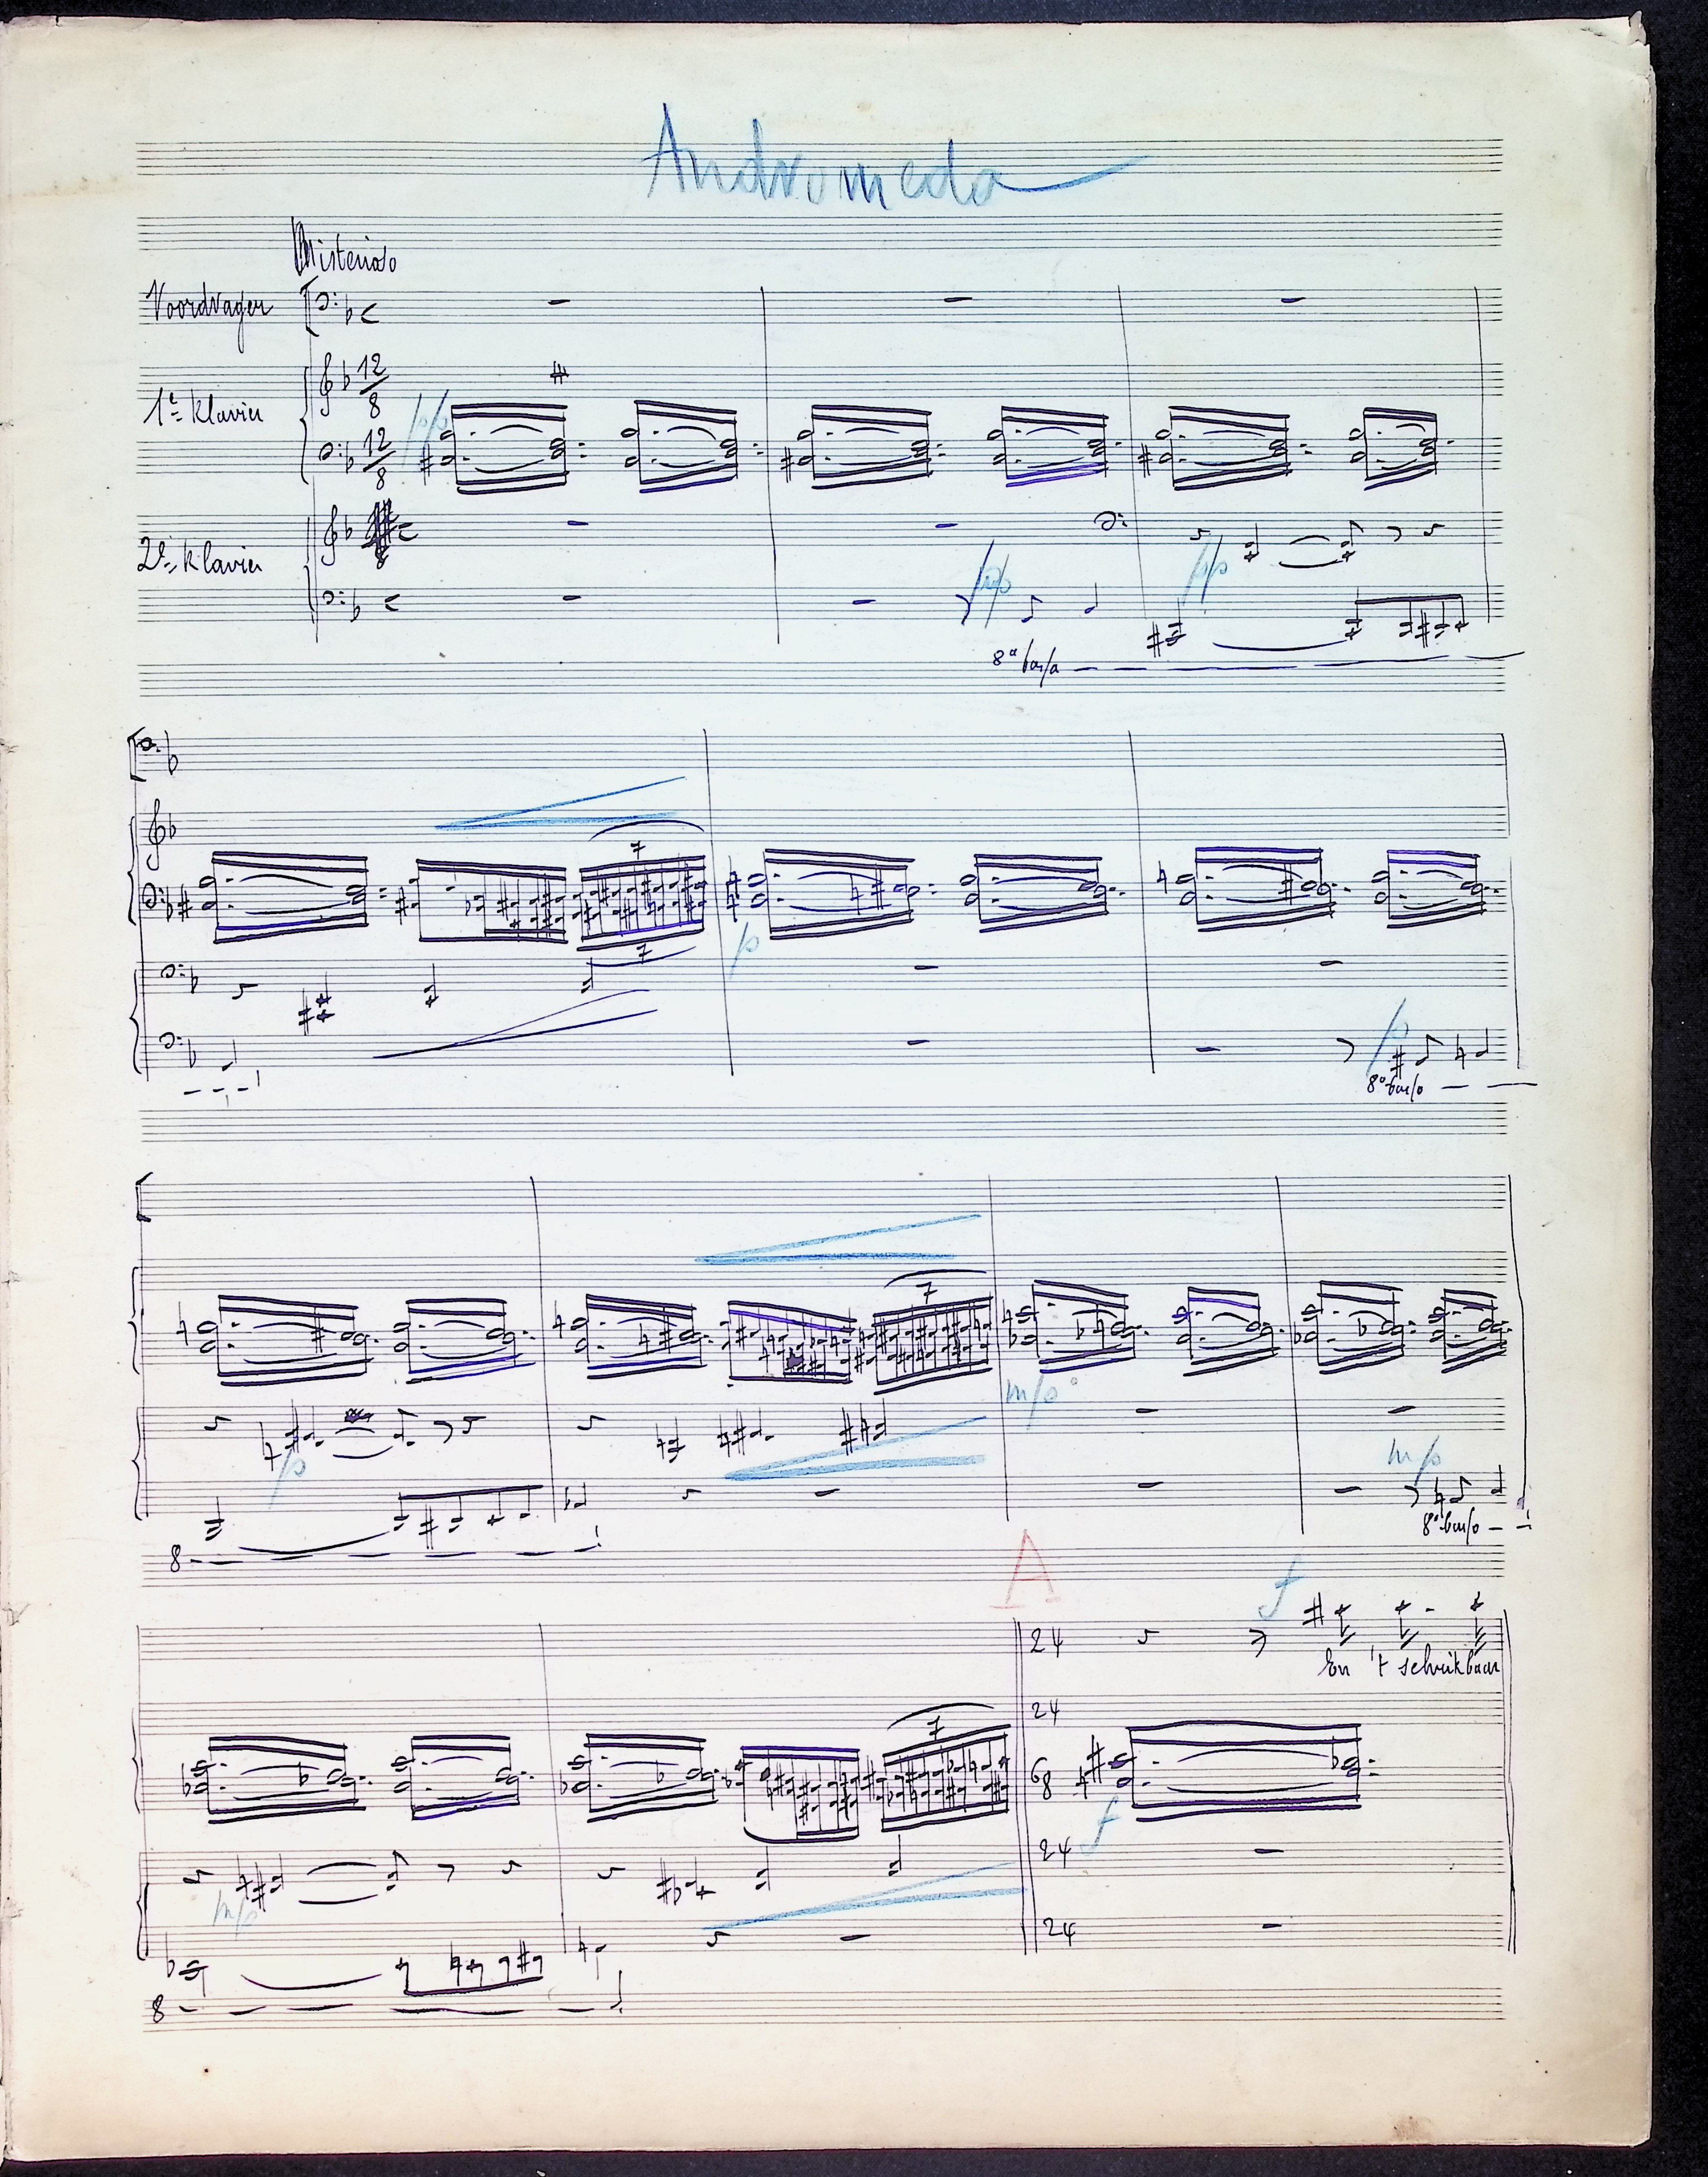 Andromeda
Misterioso
Voordrager
1e Klavier
12
8
12
8
pp
2e Klavier
pp
pp
8a bassa
7
7
p
p
8a bassa
7
mp
p
mp
8a bassa
8
A
f
24
En 't schrikbaar
24
7
6
8
f
24
mp
24
8